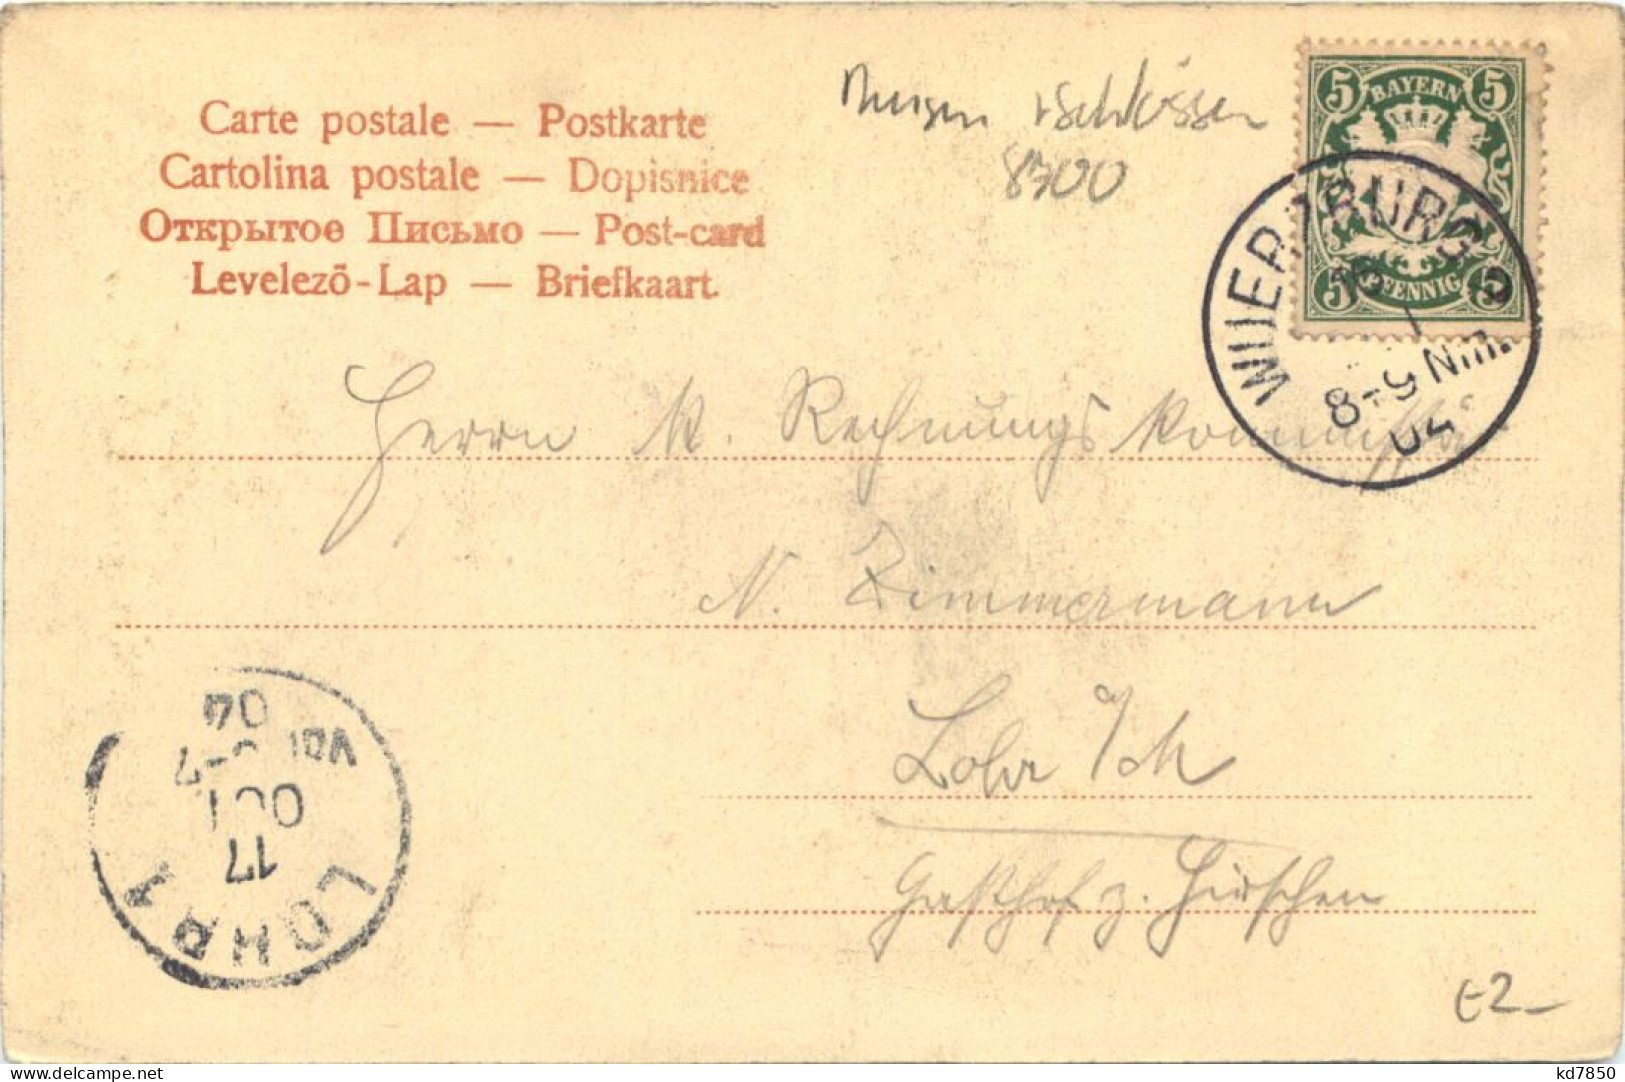 Carte postale — Postkarte
Cartolina postale — Dopisnice
Открытое Письмо — Post-card
Levelezö-Lap — Briefkaart.
+ Schlösser
8700
5 BAYERN 5
5 PFENNIG 5
WUERZBURG 2
16
8-9 Nm.
04
Herrn K. Rechnungskommissär
N. Zimmermann
Lohr a/M
Gasthof z. Hirschen
LOHR 1
17
OCT
Vor 6-7
04
E2-
kd7850